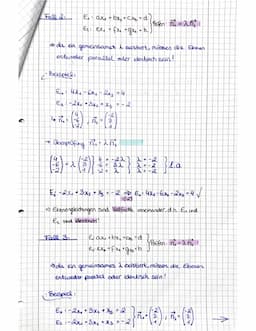 Fall 2: E₁: ax₁ + bx₂ + cx₃ = d
E₂: ex₁ + fx₂ + gx₃ = h } Falls: n⃗₁ = λ n⃗₂
→ da ein gemeinsames λ existiert, müssen die Ebenen
entweder parallel oder identisch sein!
Beispiel:
E₁: 4x₁ - 6x₂ - 2x₃ = 4
E₂: -2x₁ + 3x₂ + x₃ = -2
↳ n⃗₁ = (4 -6 -2), n⃗₂ = (-2 3 1)
→ Überprüfung n⃗₁ = λ n⃗₂
(4 -6 -2) = λ (-2 3 1) } 4 = -2λ -6 = 3λ -2 = λ } λ = -2 λ = -2 λ = -2 } l.a.
E₂: -2x₁ + 3x₂ + x₃ = -2 ⇒ E₁ = 4x₁ - 6x₂ - 2x₃ = 4 ✓
→ Ebenengleichungen sind Vielfache voneinander, d.h. E₁ und
E₂ sind identisch!
Fall 3: E₁: ax₁ + bx₂ + cx₃ = d
E₂: ex₁ + fx₂ + gx₃ = h } Falls: n⃗₁ = λ n⃗₂
→ da ein gemeinsames λ existiert, müssen die Ebenen
entweder parallel oder identisch sein!
Beispiel:
E₁: -2x₁ + 3x₂ + x₃ = 2
E₂: -2x₁ + 3x₂ + x₃ = -2 } n⃗₁ = (-2 3 1), n⃗₂ = (-2 3 1) →